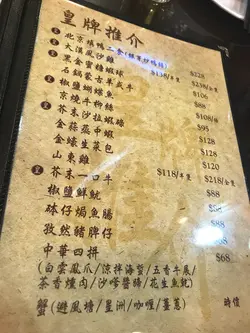 皇牌推介
北京填鴨二食
大漠風沙雞 $328
黑金蜜糖蝦球 $138/半隻 $238/全隻
石鍋蒙古羊或牛 $128
椒鹽蝴蝶魚 $106
京燒牛柳絲 $88
芥末沙拉蝦球 $108
金蒜蒸中蝦 $95
金蠔生菜包 $128
山東雞 $98
芥末一口牛 $118/半隻 $218/全隻
椒鹽鮮魷 $88
砵仔焗魚腸 $88
孜然豬脾仔 $68
中華四拼 $88
(白雲鳳爪/涼拌海蜇/五香牛展/ $68
茶香燻肉/沙嗲醬腩/花生魚魷)
蟹(避風塘/星洲/咖喱/薑蔥) 時價